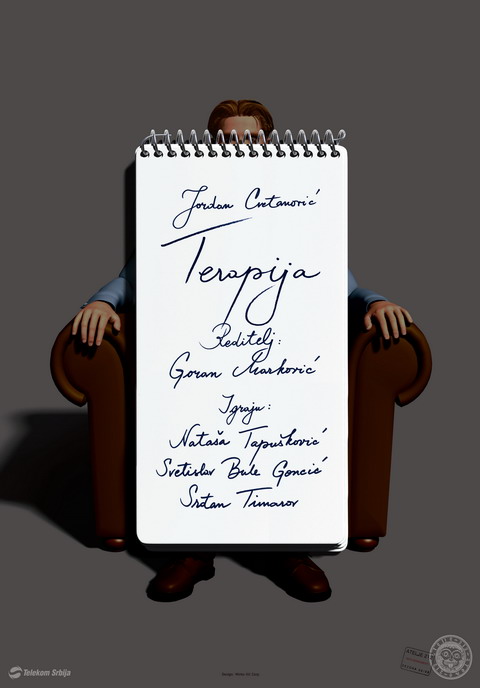 Jordan Cvetanović
Terapija
Reditelj:
Goran Marković
Igraju:
Nataša Tapušković
Svetislav Bule Goncić
Srđan Timarov
Telekom Srbija